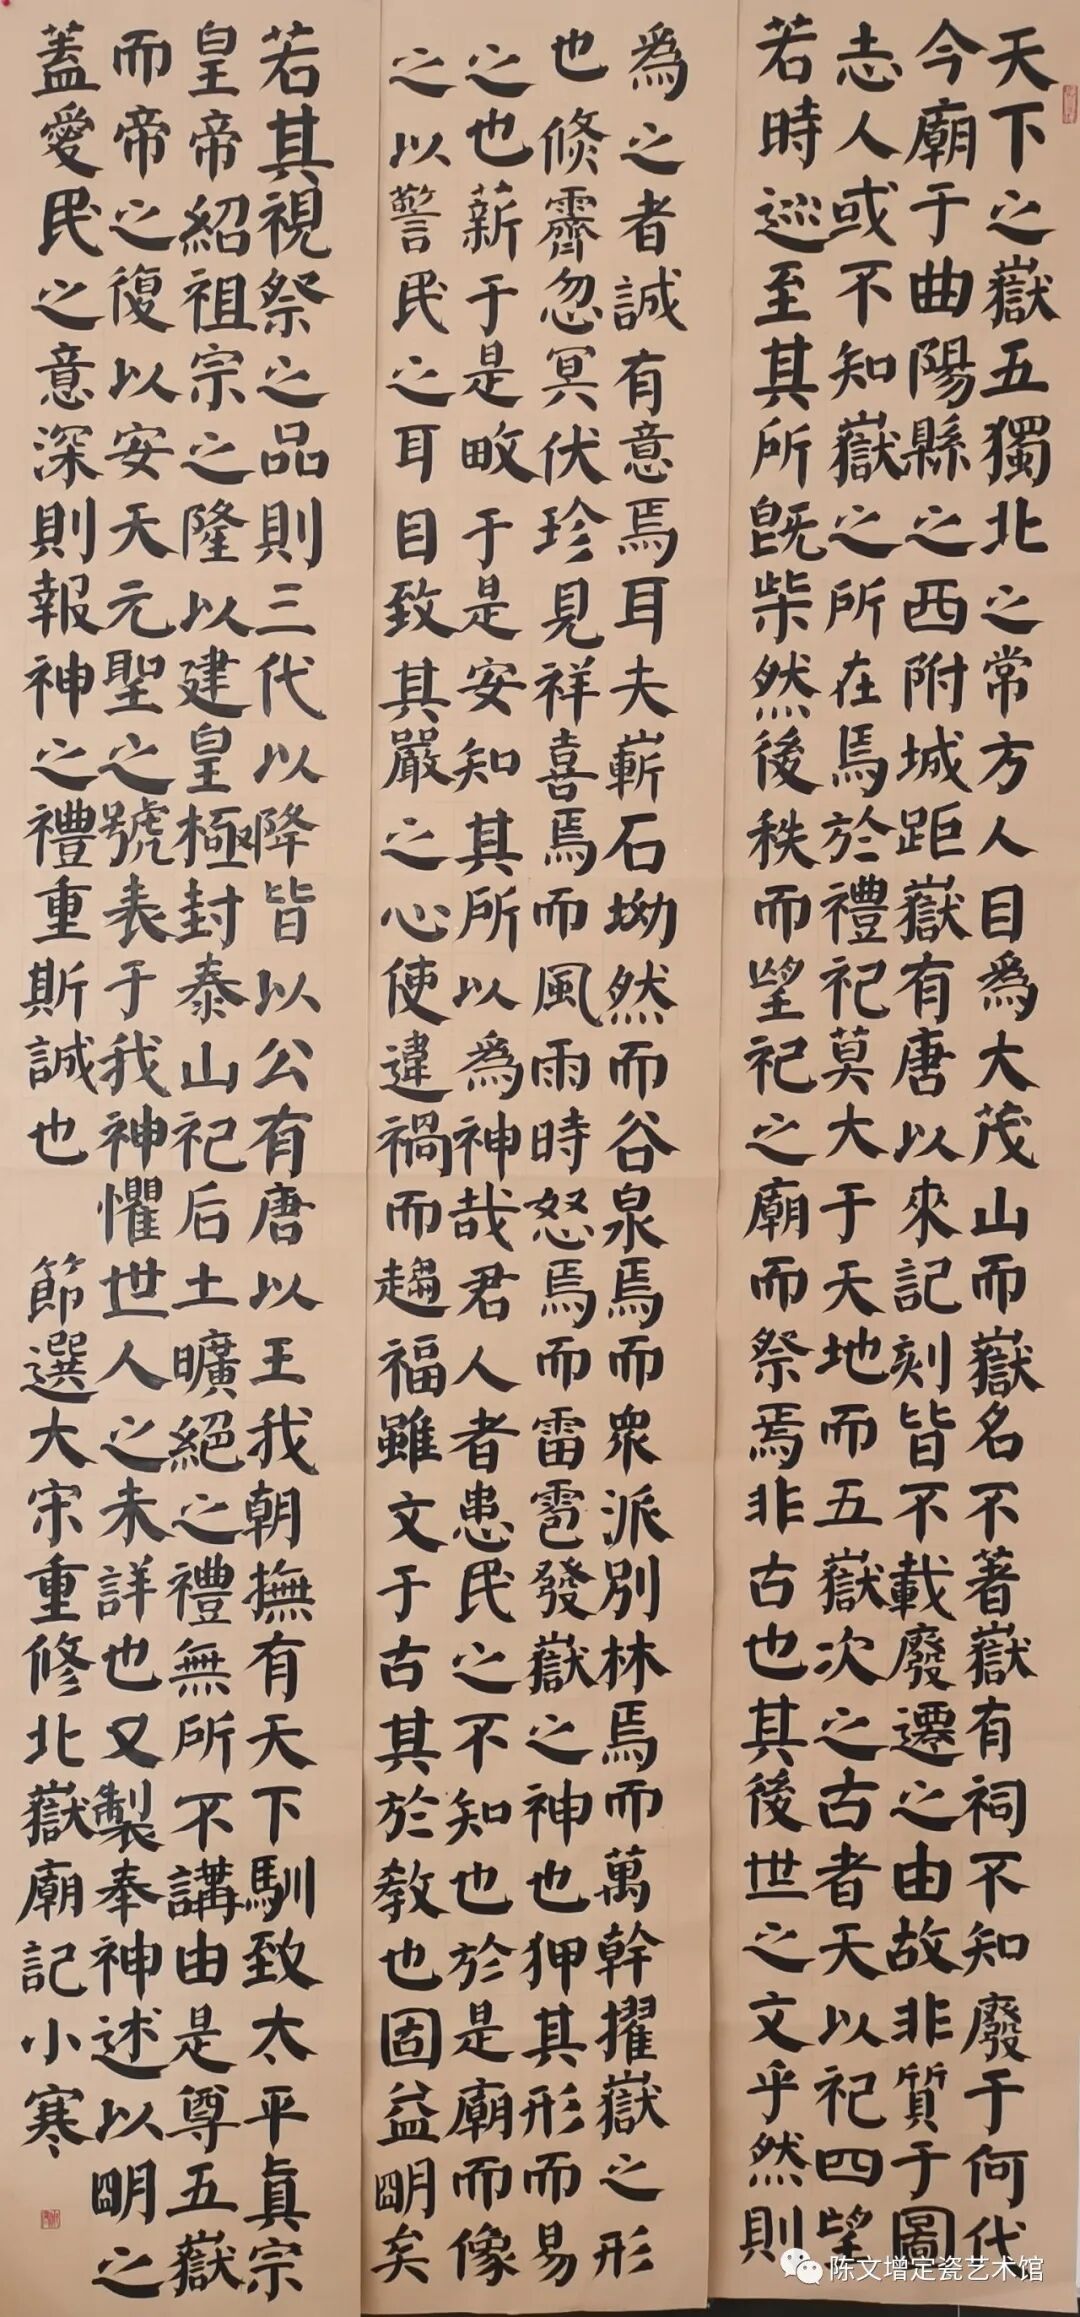 天下之嶽五獨北之常方人目為大茂山而嶽名不著嶽有祠不知廢于何代
今廟于曲陽縣之西附城距嶽有唐以來記刻皆不載廢遷之由故非質于圖
志人或不知嶽之所在焉於禮祀莫大于天地而五嶽次之古者天以祀四望
若時巡至其所旣柴然後秩而望祀之廟而祭焉非古也其後世之文乎然則
為之者誠有意焉耳夫嶄石坳然而谷泉焉而眾派別林焉而萬幹擢嶽之形
也倐霽忽冥伏珍見祥喜焉而風雨時怒焉而雷雹發嶽之神也狎其形而易
之也薪于是畋于是安知其所以為神哉君人者患民之不知也於是廟而像
之以警民之耳目致其嚴之心使違禍而趨福雖文于古其於教也固益朙矣
若其視祭之品則三代以降皆以公有唐以王我朝撫有天下馴致太平真宗
皇帝紹祖宗之隆以建皇極封泰山祀后土曠絕之禮無所不講由是尊五嶽
而帝之復以安天元聖之號表于我神懼世人之未詳也又製奉神述以朙之
蓋愛民之意深則報神之禮重斯誠也 節選大宋重修北嶽廟記小寒
陈文增定瓷艺术馆